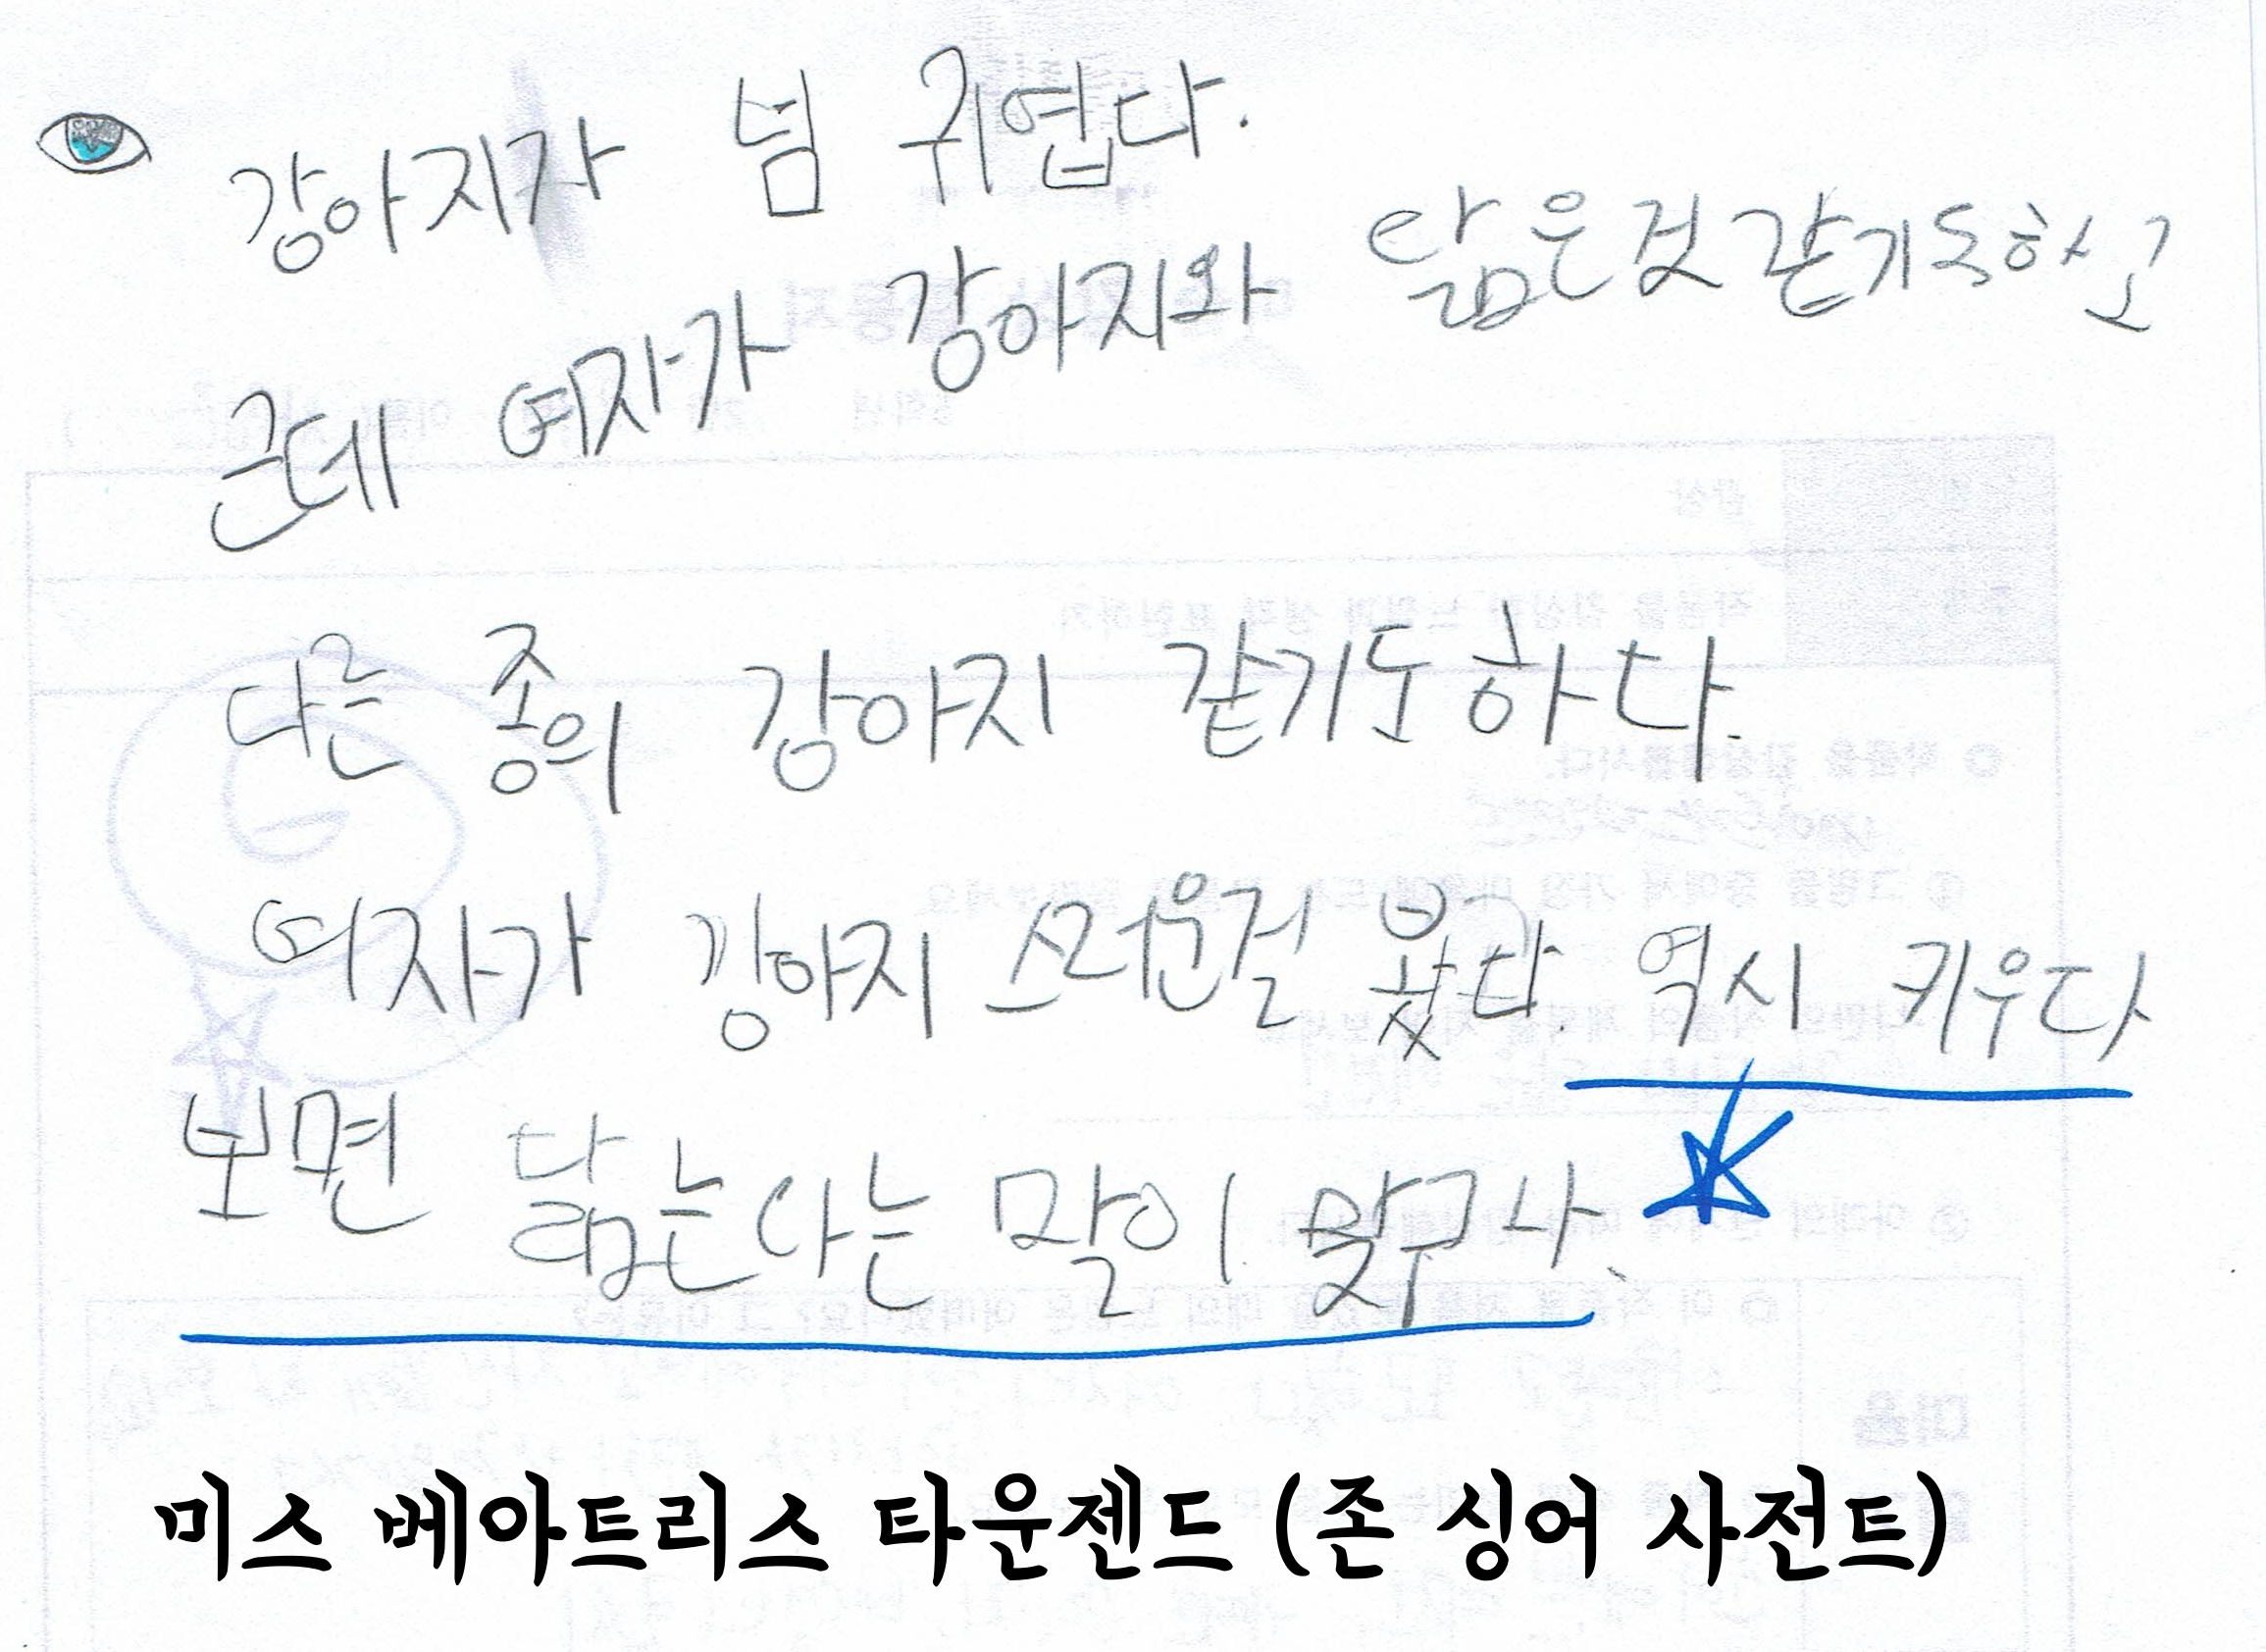 강아지가 넘 귀엽다.
근데 여자가 강아지와 닮은것같기도하고
다른 종의 강아지 같기도하다.
여자가 강아지 스러운걸 봤다. 역시 키우다
보면 닮는다는 말이 맞구나.
미스 베아트리스 타운젠드 (존 싱어 사전트)